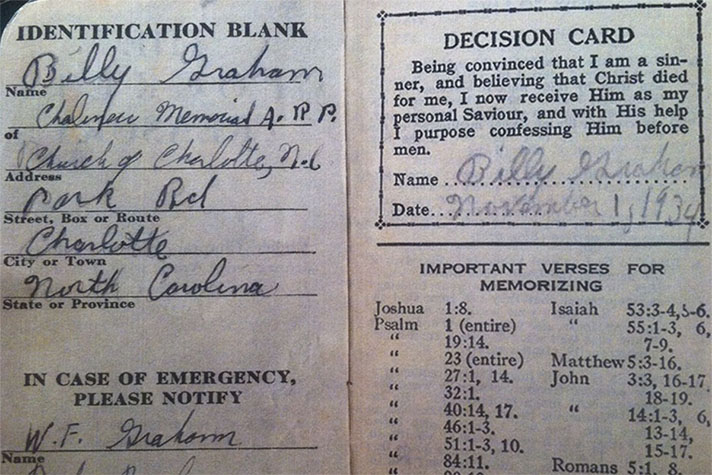 IDENTIFICATION BLANK
Billy Graham
Name
Chalmers Memorial A. R. P.
of
Church of Charlotte, N.C
Address
Park Rd
Street, Box or Route
Charlotte
City or Town
North Carolina
State or Province
IN CASE OF EMERGENCY,
PLEASE NOTIFY
W. F. Graham
Name
DECISION CARD
Being convinced that I am a sin-
ner, and believing that Christ died
for me, I now receive Him as my
personal Saviour, and with His help
I purpose confessing Him before
men.
Name Billy Graham
Date November 1, 1934
IMPORTANT VERSES FOR
MEMORIZING
Joshua 1:8.
Psalm 1 (entire)
" 19:14.
" 23 (entire)
" 27:1, 14.
" 32:1.
" 40:14, 17.
" 46:1-3.
" 51:1-3, 10.
" 84:11.
Isaiah 53:3-4,5-6.
" 55:1-3, 6,
7-9.
Matthew 5:3-16.
John 3:3, 16-17,
18-19.
" 14:1-3, 6,
13-14,
15-17.
Romans 5:1, 8.